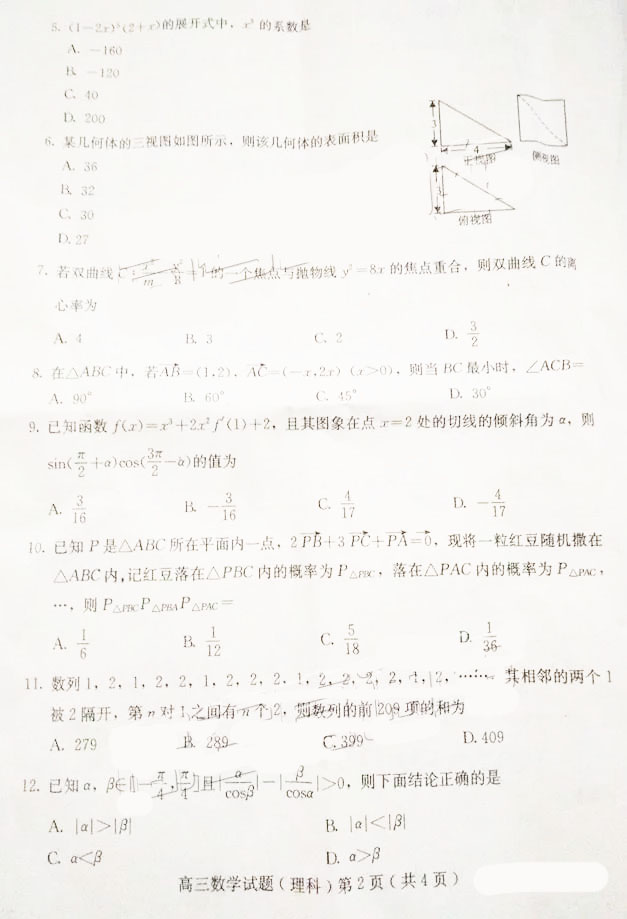 5. (1-2x)⁵(2+x)的展开式中，x³的系数是
A. -160
B. -120
C. 40
D. 200
6. 某几何体的三视图如图所示，则该几何体的表面积是
A. 36
B. 32
C. 30
D. 27
3
4
正视图
侧视图
3
俯视图
7. 若双曲线 的一个焦点与抛物线 y²=8x 的焦点重合，则双曲线 C 的离
心率为
A. 4 B. 3 C. 2 D. 3/2
8. 在△ABC中，若AB=(1,2)，AC=(-x,2x) (x>0)，则当 BC 最小时，∠ACB=
A. 90° B. 60° C. 45° D. 30°
9. 已知函数 f(x)=x³+2x²f′(1)+2，且其图象在点 x=2 处的切线的倾斜角为 α，则
sin(π/2+α)cos(3π/2-α)的值为
A. 3/16 B. -3/16 C. 4/17 D. -4/17
10. 已知 P 是△ABC 所在平面内一点，2PB+3PC+PA=0，现将一粒红豆随机撒在
△ABC内，记红豆落在△PBC 内的概率为 P△PBC，落在△PAC 内的概率为 P△PAC，
…，则 P△PBC P△PBA P△PAC=
A. 1/6 B. 1/12 C. 5/18 D. 1/36
11. 数列 1，2，1，2，2，1，2，2，2，1，2，2，2，2，1，2，…… 其相邻的两个 1
被 2 隔开，第 n 对 1 之间有 n 个 2，则数列的前 209 项的和为
A. 279 B. 289 C. 399 D. 409
12. 已知 α，β∈[-π/4，π/4]且|α/cosβ|-|β/cosα|>0，则下面结论正确的是
A. |α|>|β| B. |α|<|β|
C. α<β D. α>β
高三数学试题(理科)第2页(共4页)